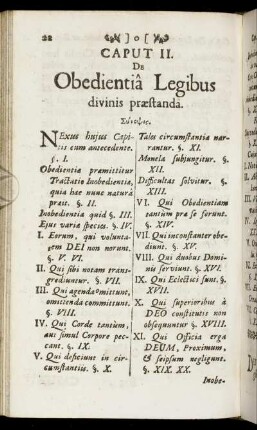 22 ]o[
CAPUT II.
De
Obedientiâ Legibus
divinis præstanda.
Σύνοψις.
Nexus hujus Capi-
tis cum antecedente.
§. I.
Obedientiæ præmittitur
Tractatio Inobedientiæ,
quia hæc nunc naturâ
præit. §. II.
Inobedientia quid §. III.
Ejus variæ species. §. IV.
I. Eorum, qui volunta-
tem DEI non norunt.
§. V. VI.
II. Qui sibi notam trans-
grediuntur. §. VII.
III. Qui agenda omittunt,
omittenda committunt.
§. VIII.
IV. Qui Corde tantùm,
aut simul Corpore pec-
cant. §. IX.
V. Qui deficiunt in cir-
cumstantiis. §. X.
Tales circumstantiæ nar-
rantur. §. XI.
Monela subjungitur. §.
XII.
Difficultas solvitur. §.
XIII.
VI. Qui Obedientiam
tantùm præ se ferunt.
§. XIV.
VII. Qui inconstanter obe-
diunt. §. XV.
VIII. Qui duobus Domi-
nis serviunt. §. XVI.
IX. Qui Eclectici sunt.
§. XVII.
X. Qui superioribus à
DEO constitutis non
obsequuntur §. XVIII.
XI. Qui Officia erga
DEUM, Proximum,
& seipsum negligunt.
§. XIX. XX.
Inobe-